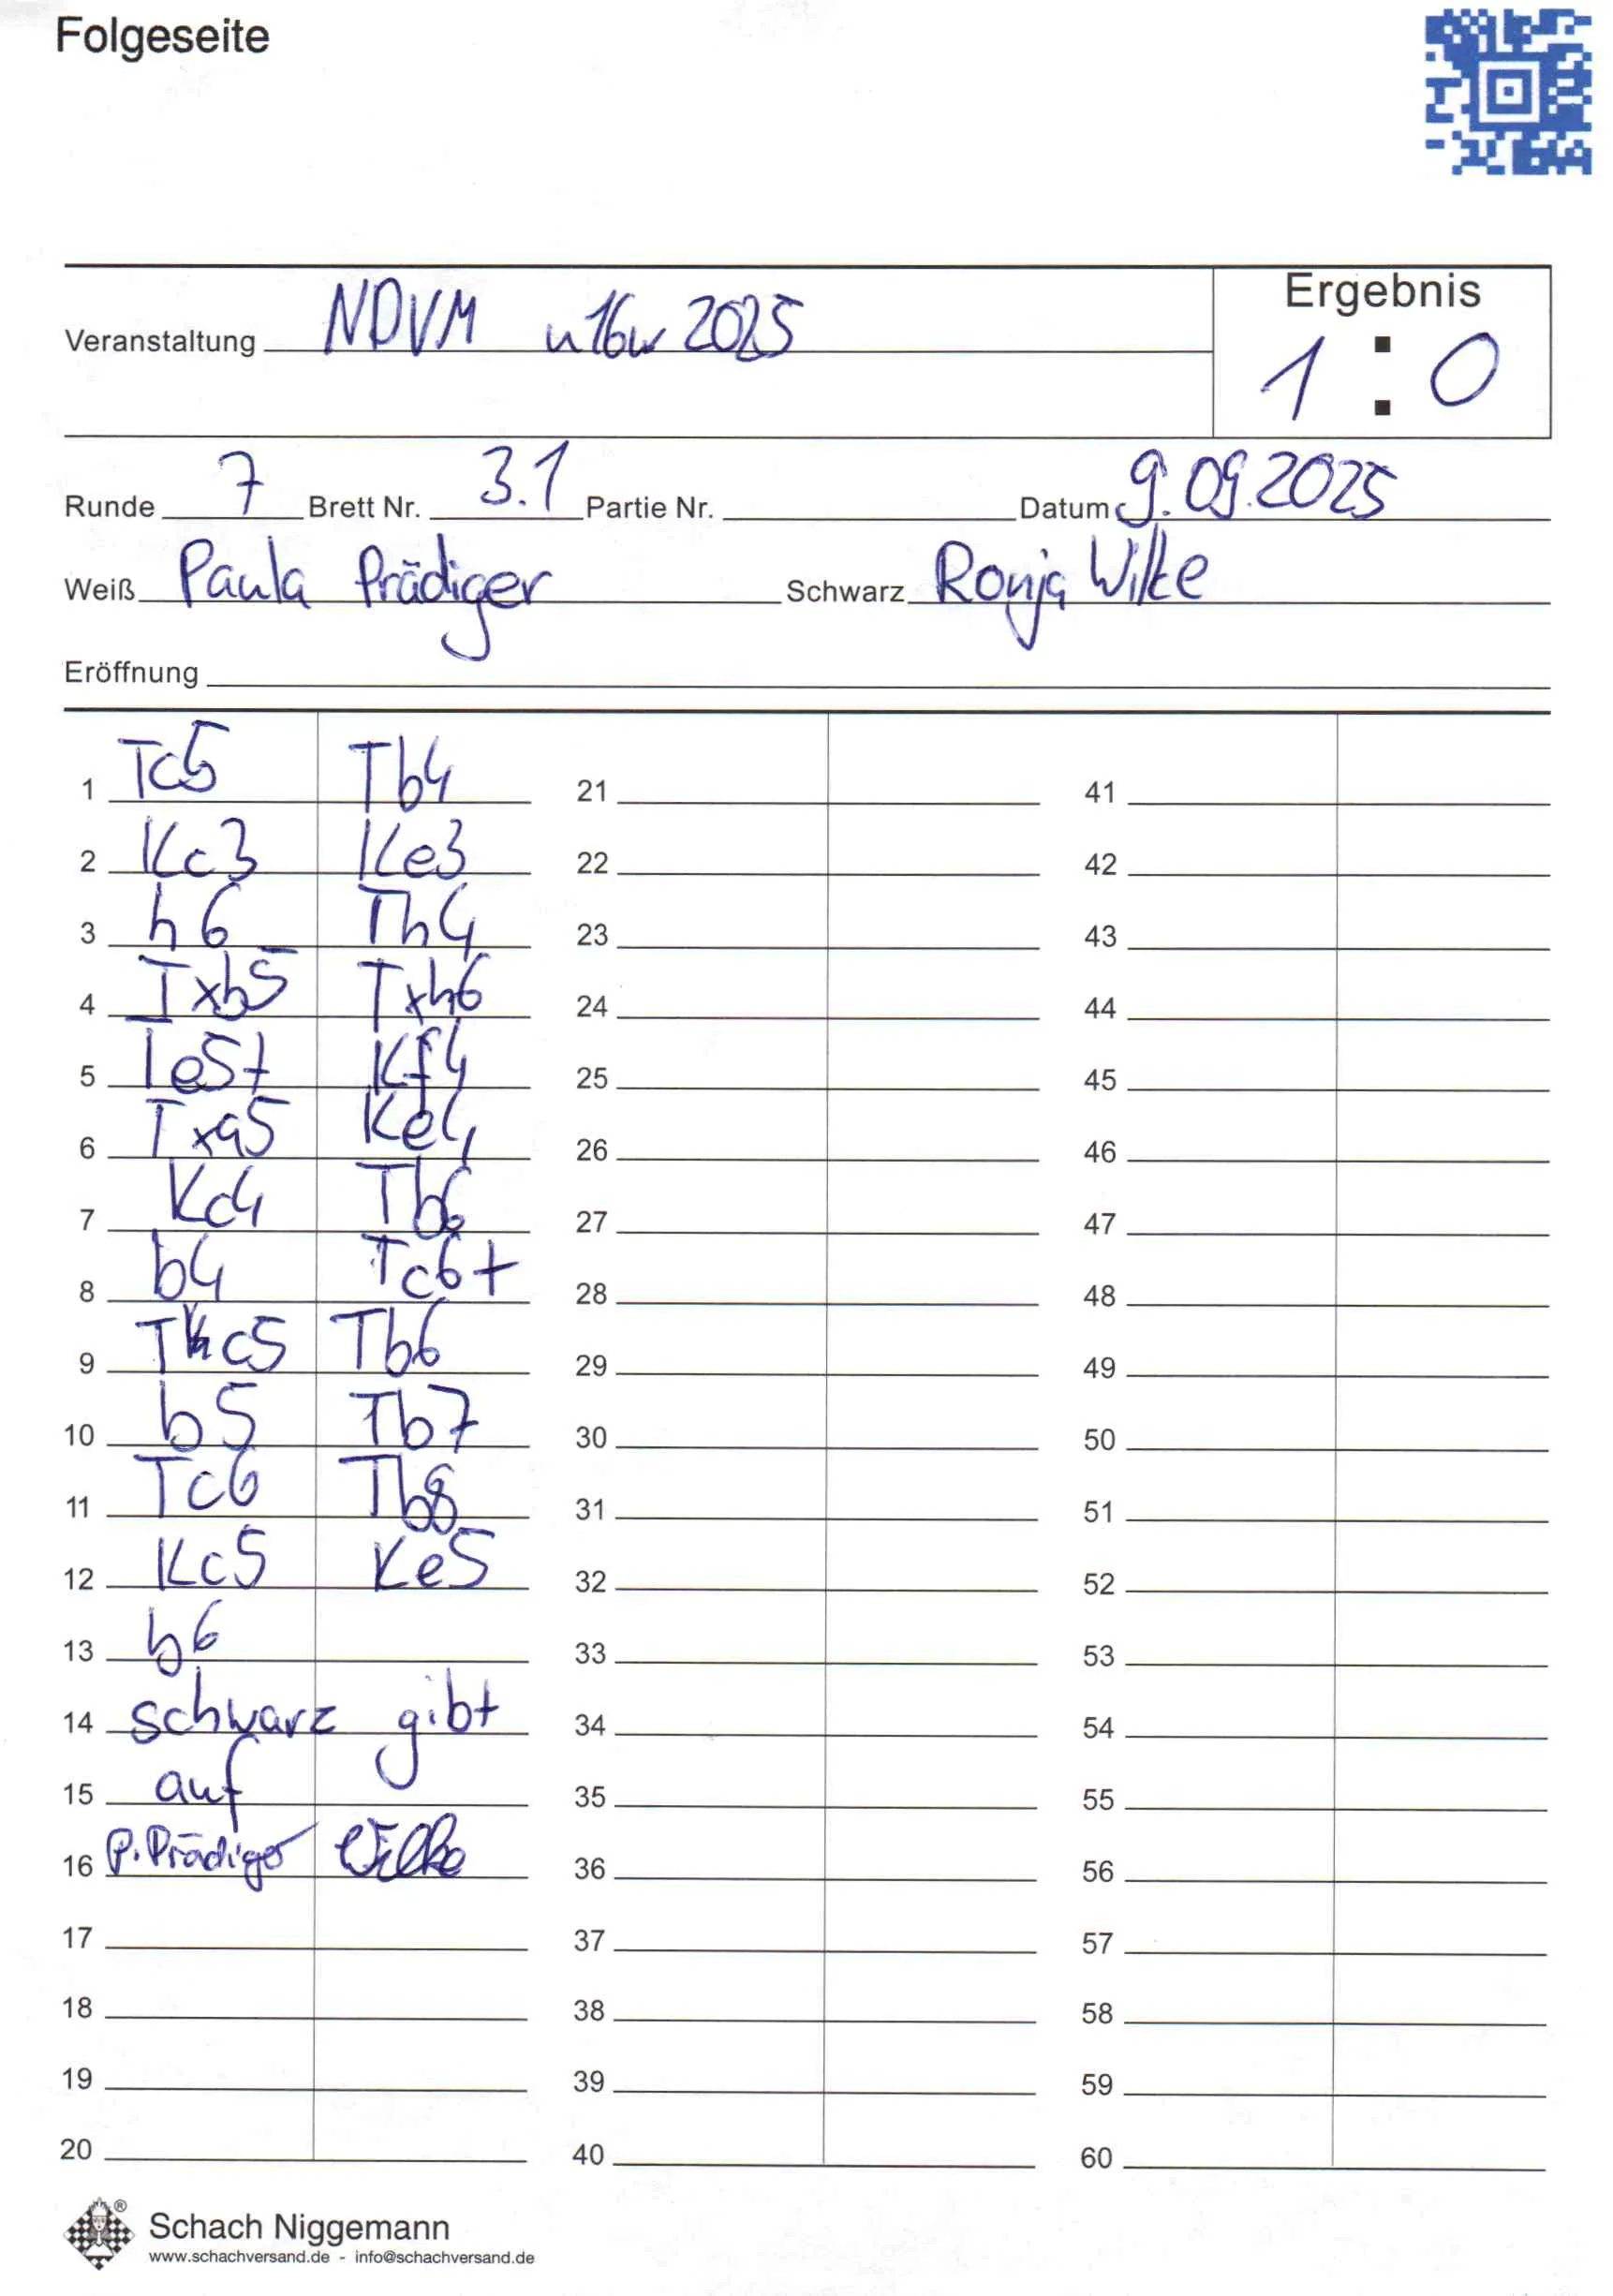 Folgeseite
Veranstaltung NDVM u16w 2025
Ergebnis
1 : 0
Runde 7 Brett Nr. 3.1 Partie Nr. Datum 9.09.2025
Weiß Paula Prädiger Schwarz Ronja Wilke
Eröffnung
1 Tc5 Tb4 21 41
2 Kc3 Ke3 22 42
3 h6 Th4 23 43
4 Txb5 Txh6 24 44
5 Te5+ Kf4 25 45
6 Txa5 Ke4 26 46
7 Kc4 Tb6 27 47
8 b4 Tc6+ 28 48
9 Tc5 Tb6 29 49
10 b5 Tb7 30 50
11 Tc6 Tb8 31 51
12 Kc5 Ke5 32 52
13 b6 33 53
14 schwarz gibt 34 54
15 auf 35 55
16 P. Prädiger Wilke 36 56
17 37 57
18 38 58
19 39 59
20 40 60
Schach Niggemann
www.schachversand.de - info@schachversand.de